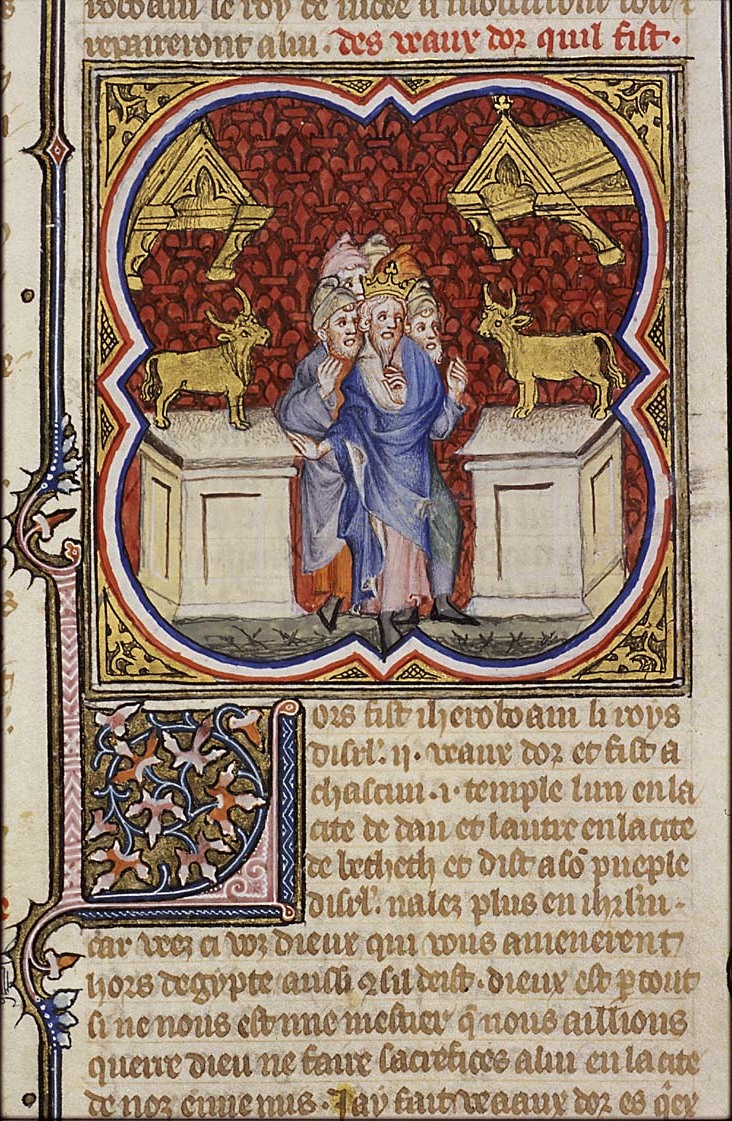 repaireront a lui . des veaux dor quil fist .
Lors fist iheroboam li roys
disrl'. ii . veaux dor et fist a
chascun . i . temple lun en la
cite de dan et lautre en la cite
de betheth et dist a sō pueple
disrl'. nalez plus en ihrl'm .
car veez ci voz dieux qui vous amenerent
hors degypte aussi 9 sil deist . dieux est ꝑ tout
si ne nous est mie mestier q̄ nous aillions
querre dieu ne faire sacrefices a lui en la cite
de noz ennemis . Jay fait veaaux dor es q̄ex